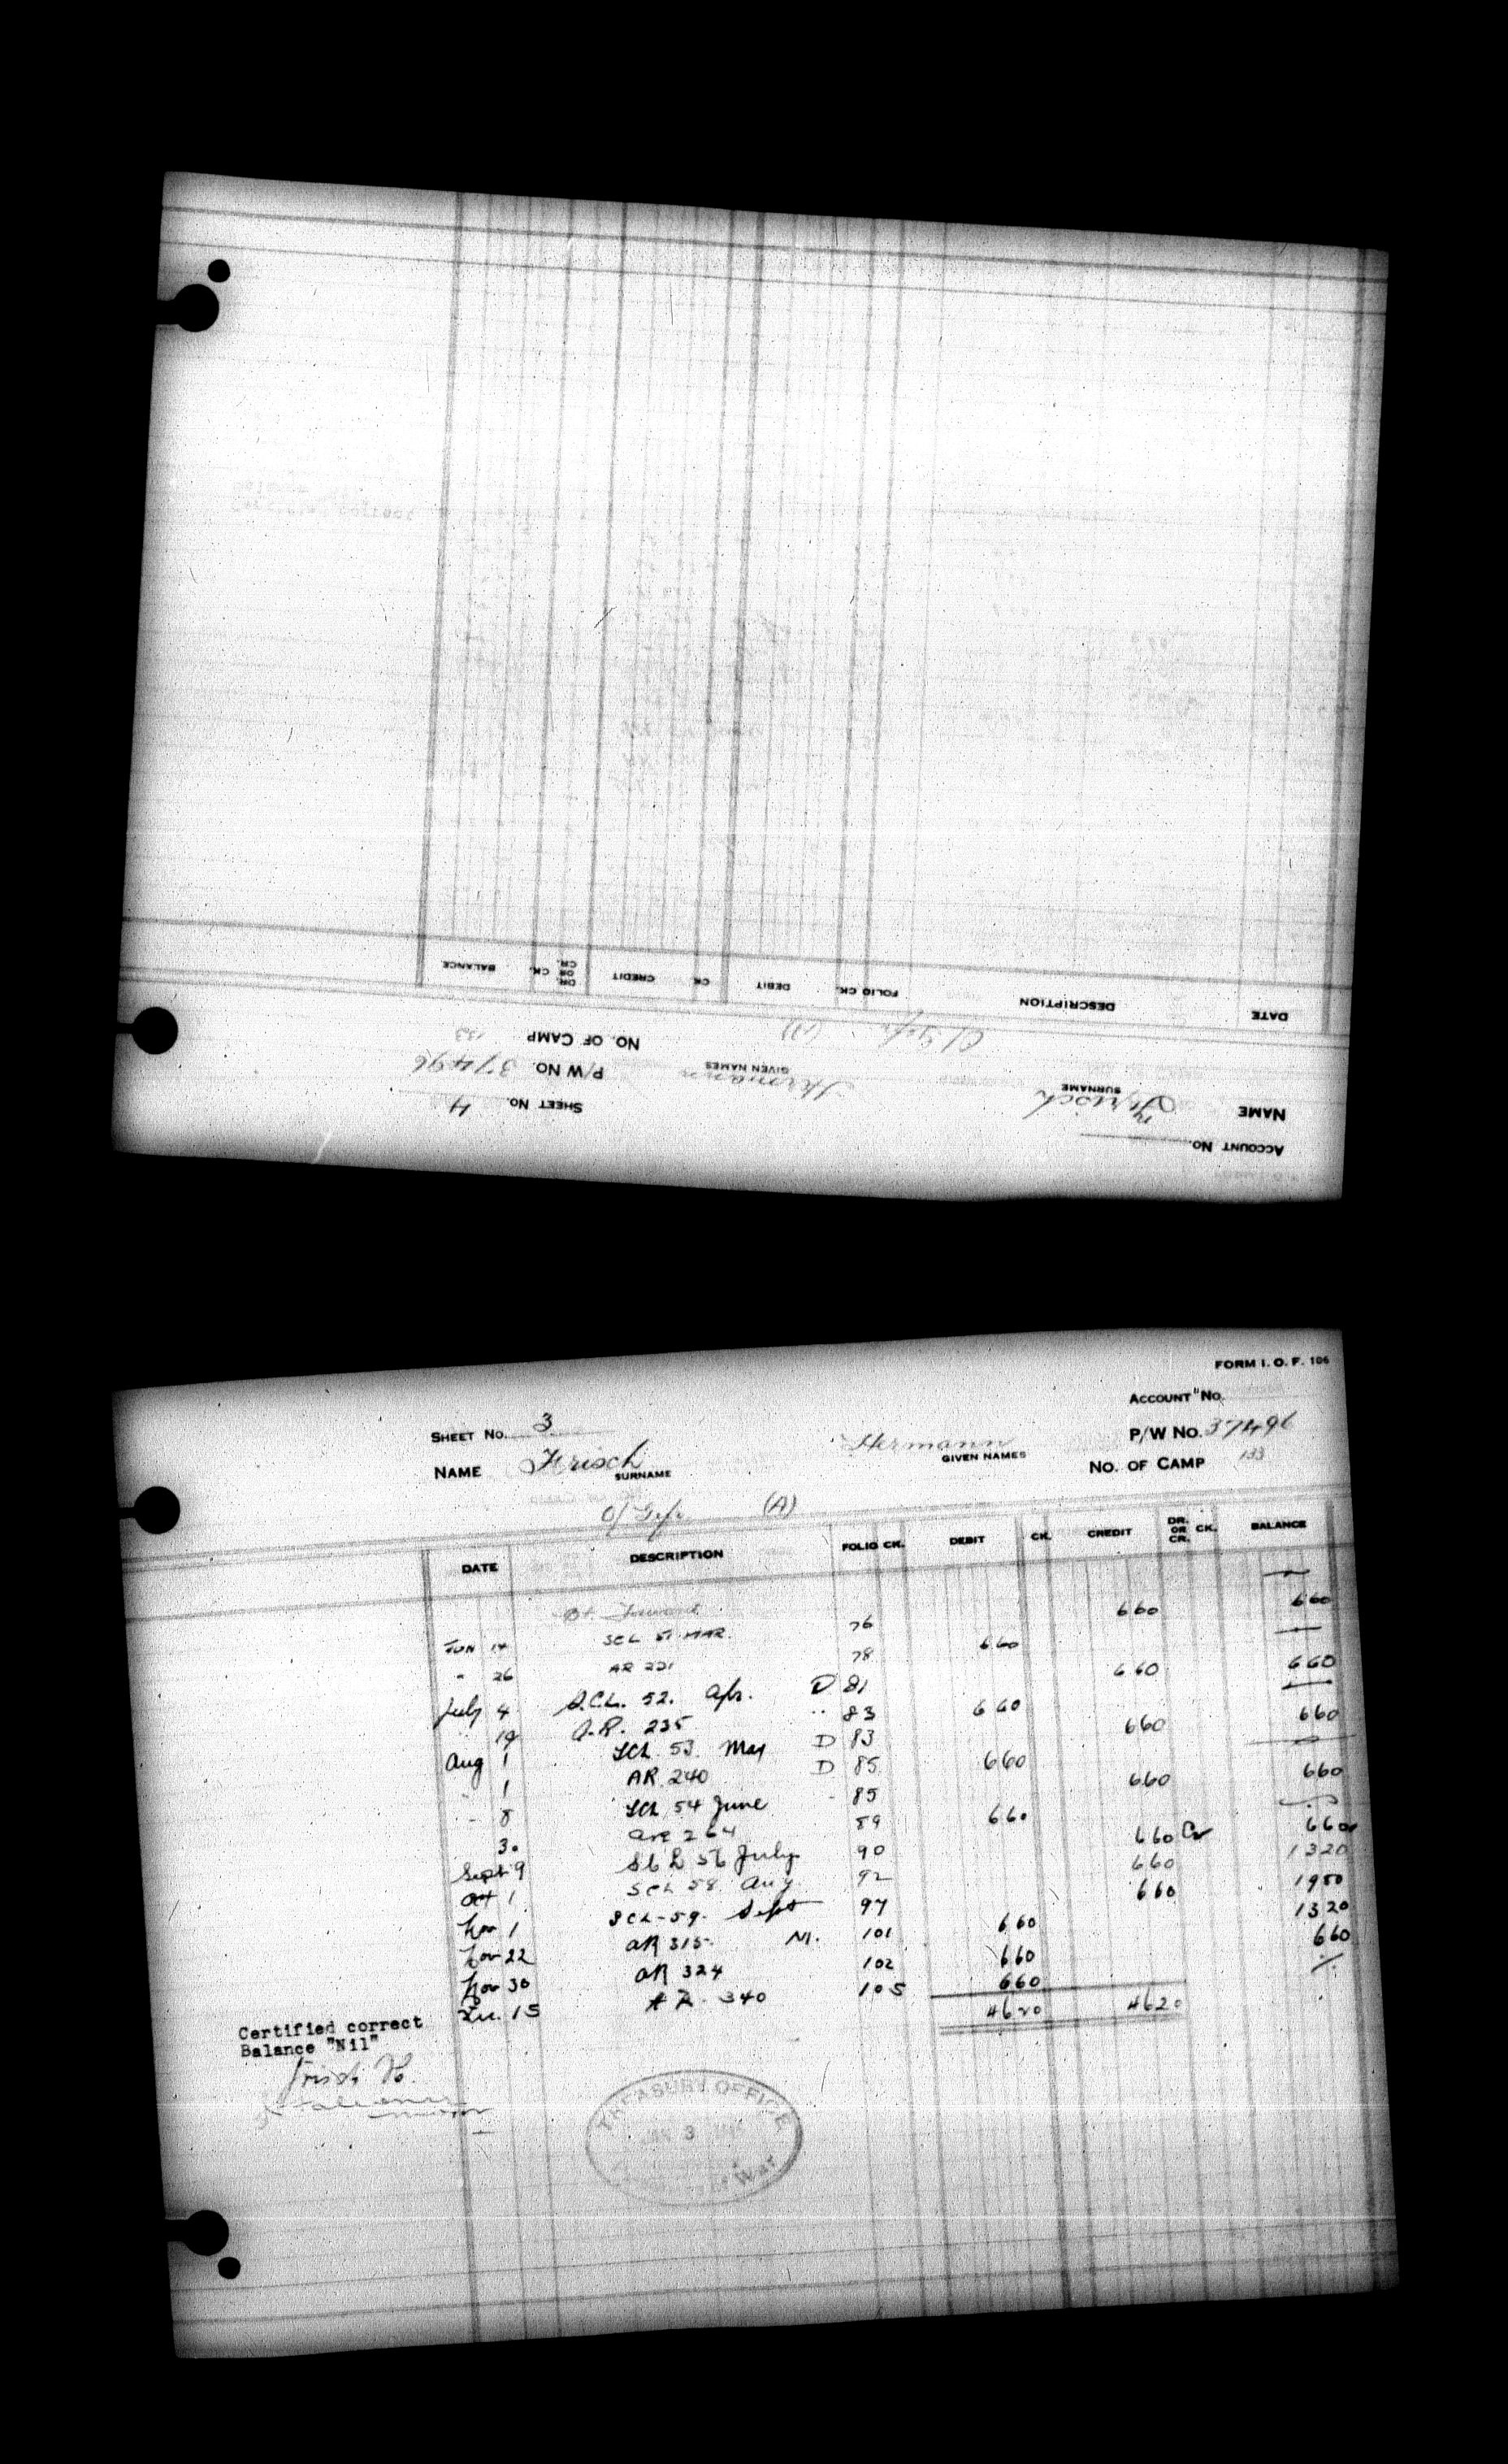 BALANCE DR. OR CR. CK. CREDIT CK. DEBIT FOLIO CK. DESCRIPTION DATE
NO. OF CAMP 133 (A) O/Gefr.
P/W No. 37496 GIVEN NAMES Hermann SURNAME Frisch NAME
SHEET No. 4
ACCOUNT No.
FORM I. O. F. 106
ACCOUNT No.
SHEET No. 3
P/W No. 37496
NAME Frisch Hermann
SURNAME GIVEN NAMES
NO. OF CAMP 133
O/Gefr. (A)
DATE DESCRIPTION FOLIO CK. DEBIT CK. CREDIT DR. OR CR. CK. BALANCE
Bt. Forward —
Jun 14 SCL 51 MAR. 76 660 660
" 26 AR 221 78 660 —
July 4 S.C.L. 52. Apr. D 81 660 660
19 A.R. 235 " 83 660 —
Aug 1 SCL 53 May D 83 660 660
" 1 AR 240 D 85 660 —
" 8 SCL 54 June - 85 660 660
30 AR 264 89 660 —
Sept 9 SCL 56 July 90 660 Cr 660
Oct 1 SCL 58 Aug 92 660 1320
Nov 1 SCL-59. Sept 97 660 1980
Nov 22 AR 315 101 660 1320
Nov 30 AR 324 102 660 660
Dec. 15 AR 340 105 660
4620 4620
Certified correct
Balance "Nil"
Frisch H.
TREASURY OFFICE
JAN 3
of War